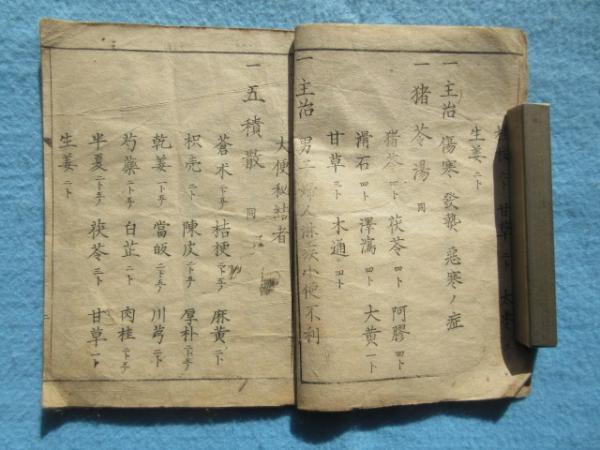 甘草 二ト
生姜 二ト
一 主治 傷寒 發熱 惡寒ノ症
一 猪苓湯
猪苓 一ト 茯苓 四ト 阿膠 四ト
滑石 四ト 澤瀉 四ト 大黄 一ト
甘草 三ト 木通 四ト
一 主治 男女 人淋疾小便不利
大便秘結者
一 五積散
蒼术 桔梗 麻黄 二ト
枳壳 二ト 陳皮 厚朴
乾姜 當皈 川芎
芍藥 白芷 二ト 肉桂
半夏 茯苓 三ト 甘草 一ト
生姜 二ト